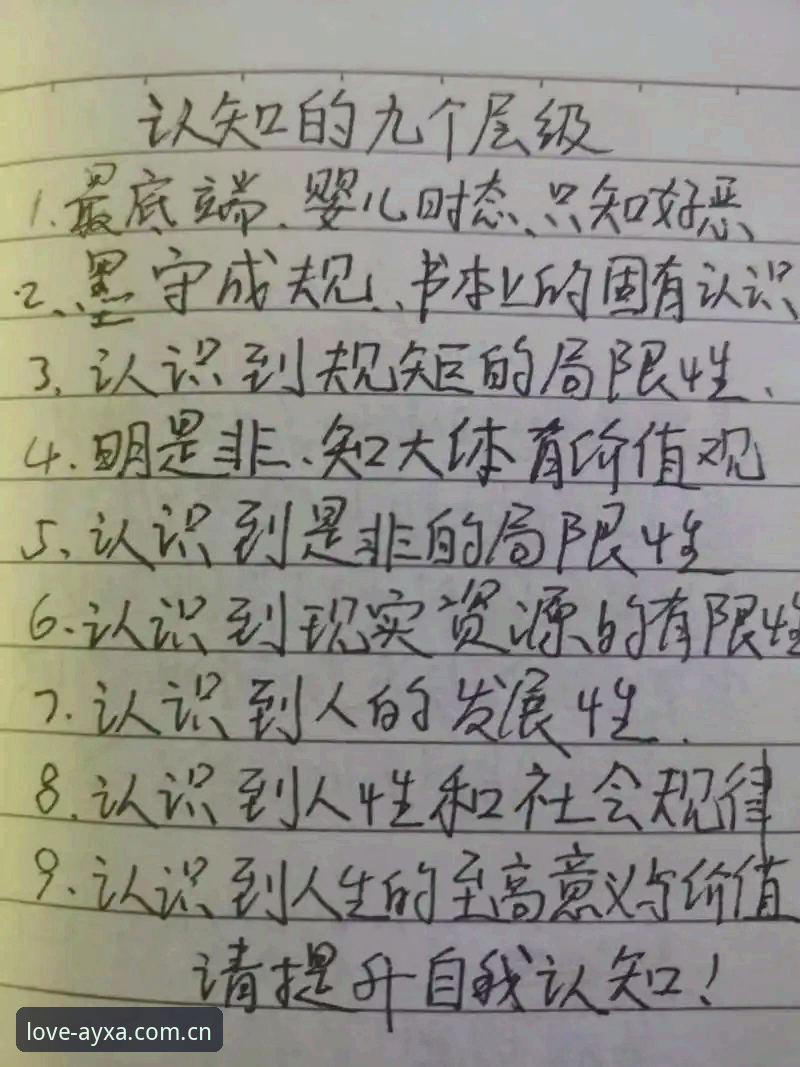 认知的九个层级
1.最底端、婴儿时态、只知好恶
2、墨守成规、书本上的固有认识
3、认识到规矩的局限性、
4.明是非、知大体有价值观
5、认识到是非的局限性
6.认识到现实资源的有限性
7.认识到人的发展性.
8.认识到人性和社会规律
9.认识到人生的至高意义与价值
请提升自我认知!
love-ayxa.com.cn